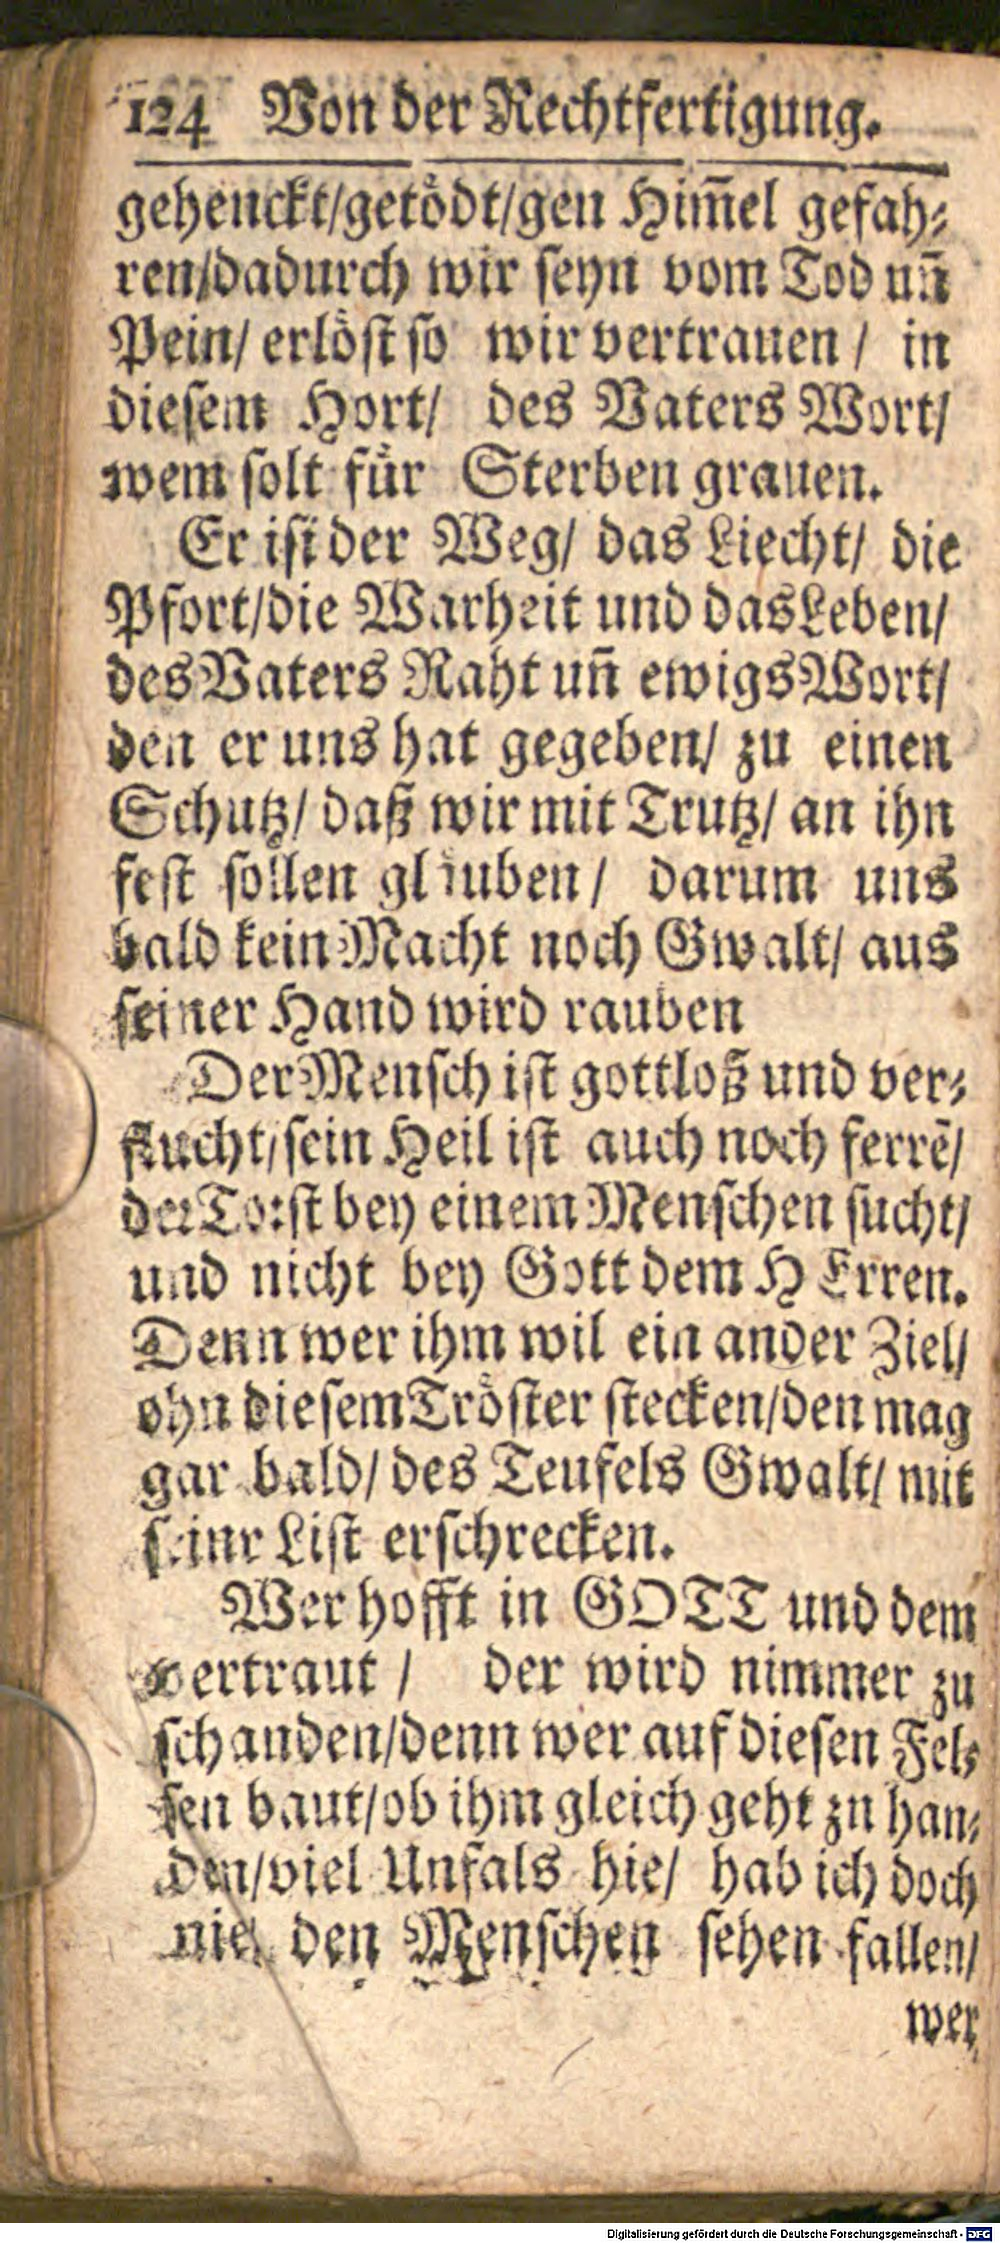 124 Von der Rechtfertigung.
gehenckt/getödt/gen Him̃el gefah⸗
ren/dadurch wir seyn vom Tod un̄
Pein/ erlöst so wir vertrauen / in
diesem Hort/ des Vaters Wort/
wem solt für Sterben grauen.
Er ist der Weg/ das Liecht/ die
Pfort/die Warheit und das Leben/
des Vaters Raht un̄ ewigs Wort/
den er uns hat gegeben/ zu einen
Schutz/ daß wir mit Trutz/ an ihn
fest sollen glauben / darum uns
bald kein Macht noch Gwalt/ aus
seiner Hand wird rauben
Der Mensch ist gottloß und ver⸗
flucht/sein Heil ist auch noch ferrē/
der Torst bey einem Menschen sucht/
und nicht bey Gott dem HErren.
Denn wer ihm wil ein ander Ziel/
ohn diesem Tröster stecken/den mag
gar bald/ des Teufels Gwalt/ mit
seinr List erschrecken.
Wer hofft in GOTT und dem
vertraut / der wird nimmer zu
schanden/denn wer auf diesen Fel⸗
sen baut/ob ihm gleich geht zu han⸗
den/viel Unfals hie/ hab ich doch
nie den Menschen sehen fallen/
wer
Digitalisierung gefördert durch die Deutsche Forschungsgemeinschaft - DFG